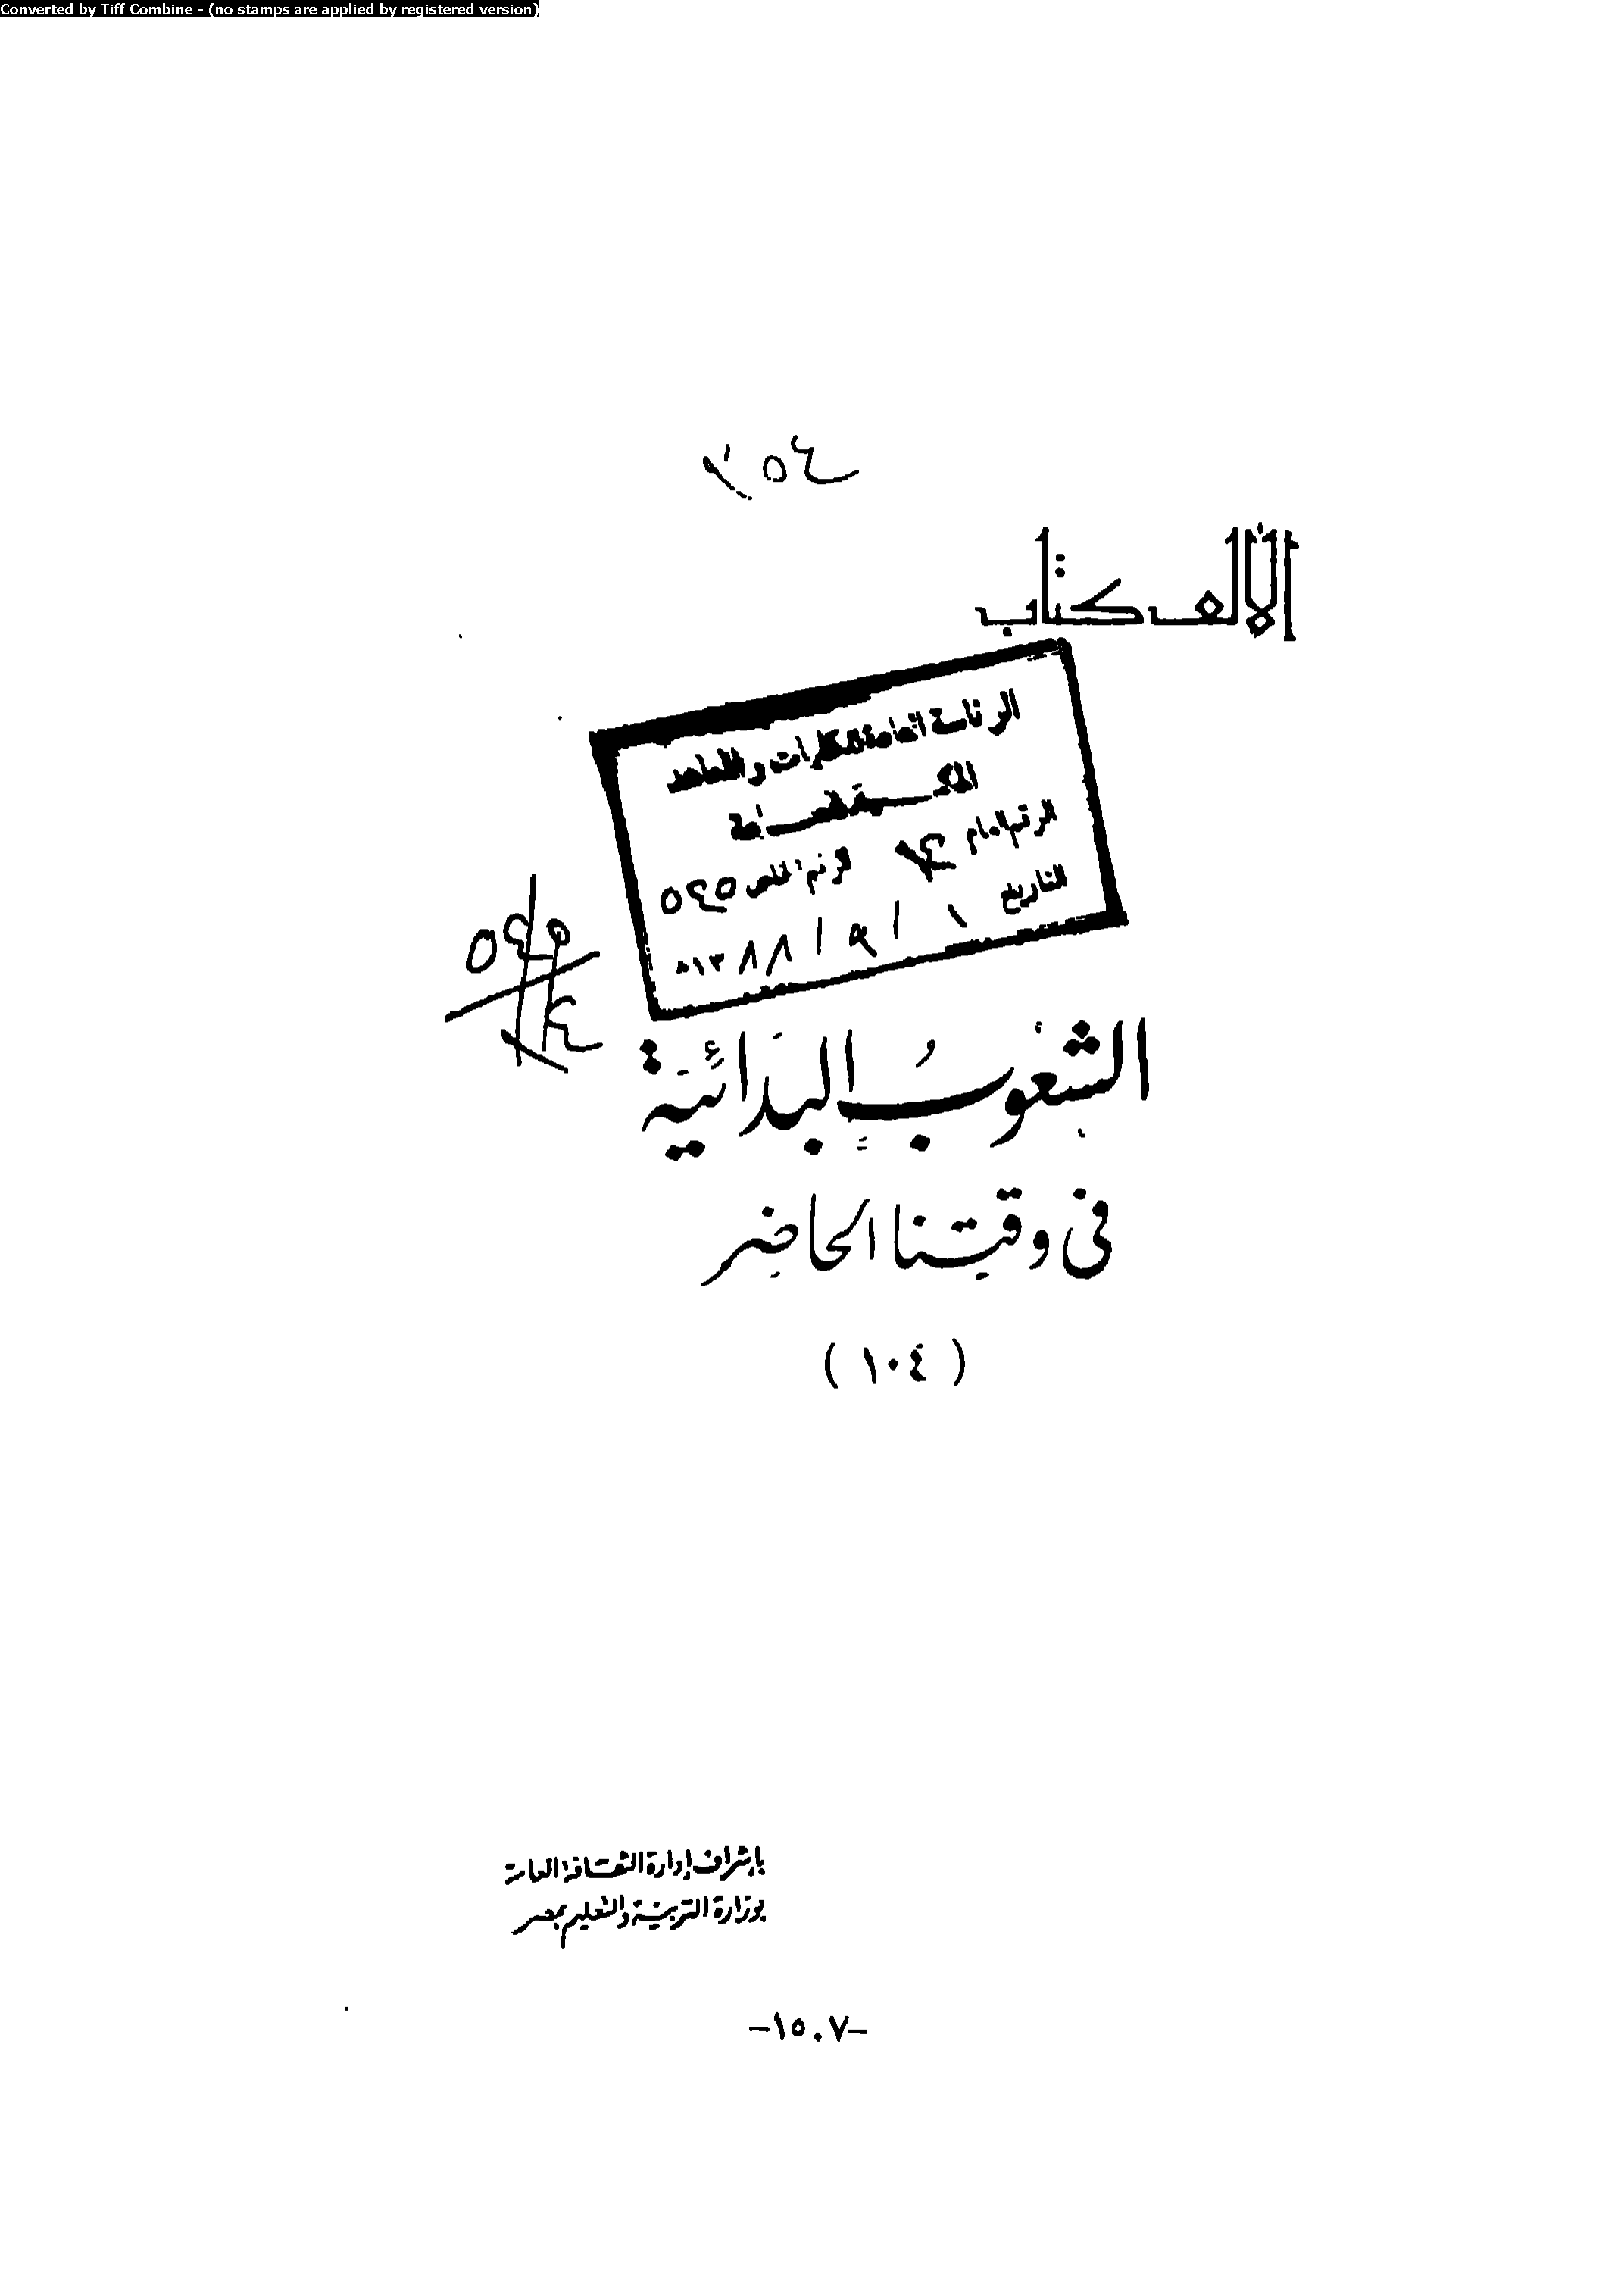 Converted by Tiff Combine - (no stamps are applied by registered version)
٣٥٤
الألف كتاب
الرئاسة العامة للكليات والمعاهد
المكتبة العامة
الرقم العام الرقم الخاص ٥٤٥
التاريخ ١ / ٩ / ١٣٨٨ه
الشعُوبُ البدَائيَة
فى وقتِنا الحاضِر
( ١٠٤ )
بإشراف إدارة الثقافة العامة
بوزارة التربية والتعليم بمصر
-١٥٠٧-